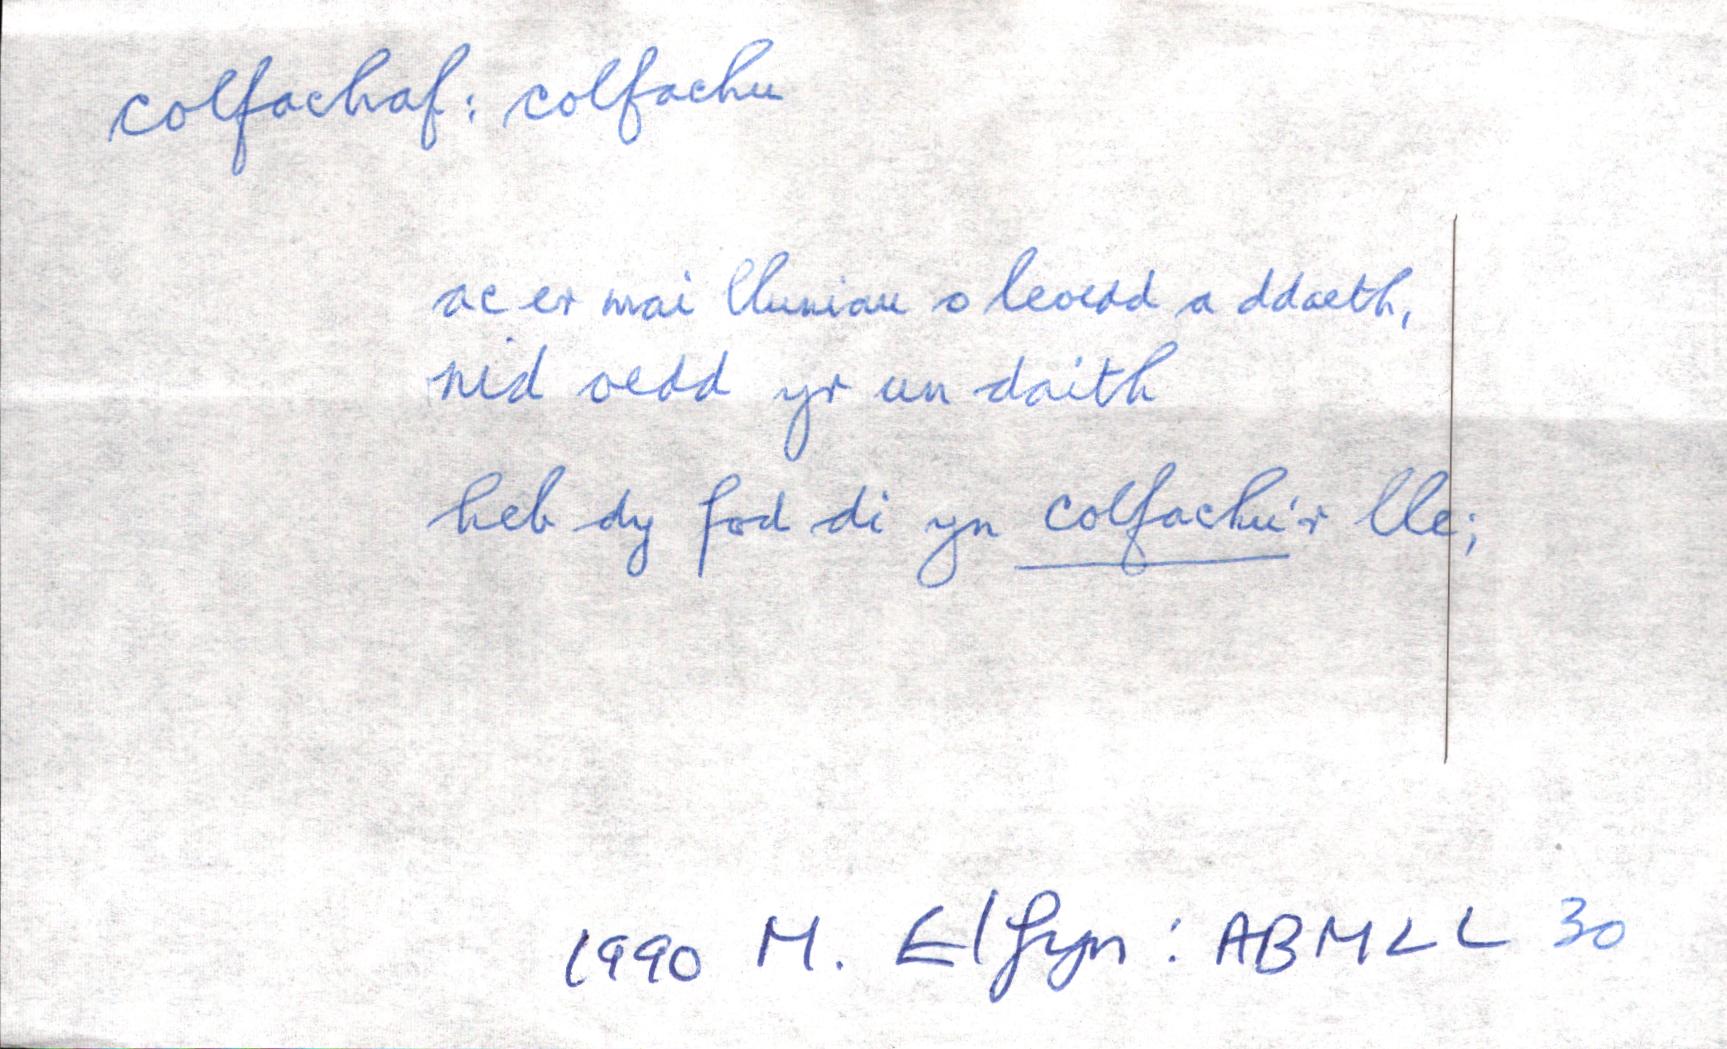 colfachaf: colfachu
ac er mai lluniau o leoedd a ddaeth,
nid oedd yr un daith
heb dy fod di yn colfachu'r lle;
1990 M. Elfyn: ABMLL 30